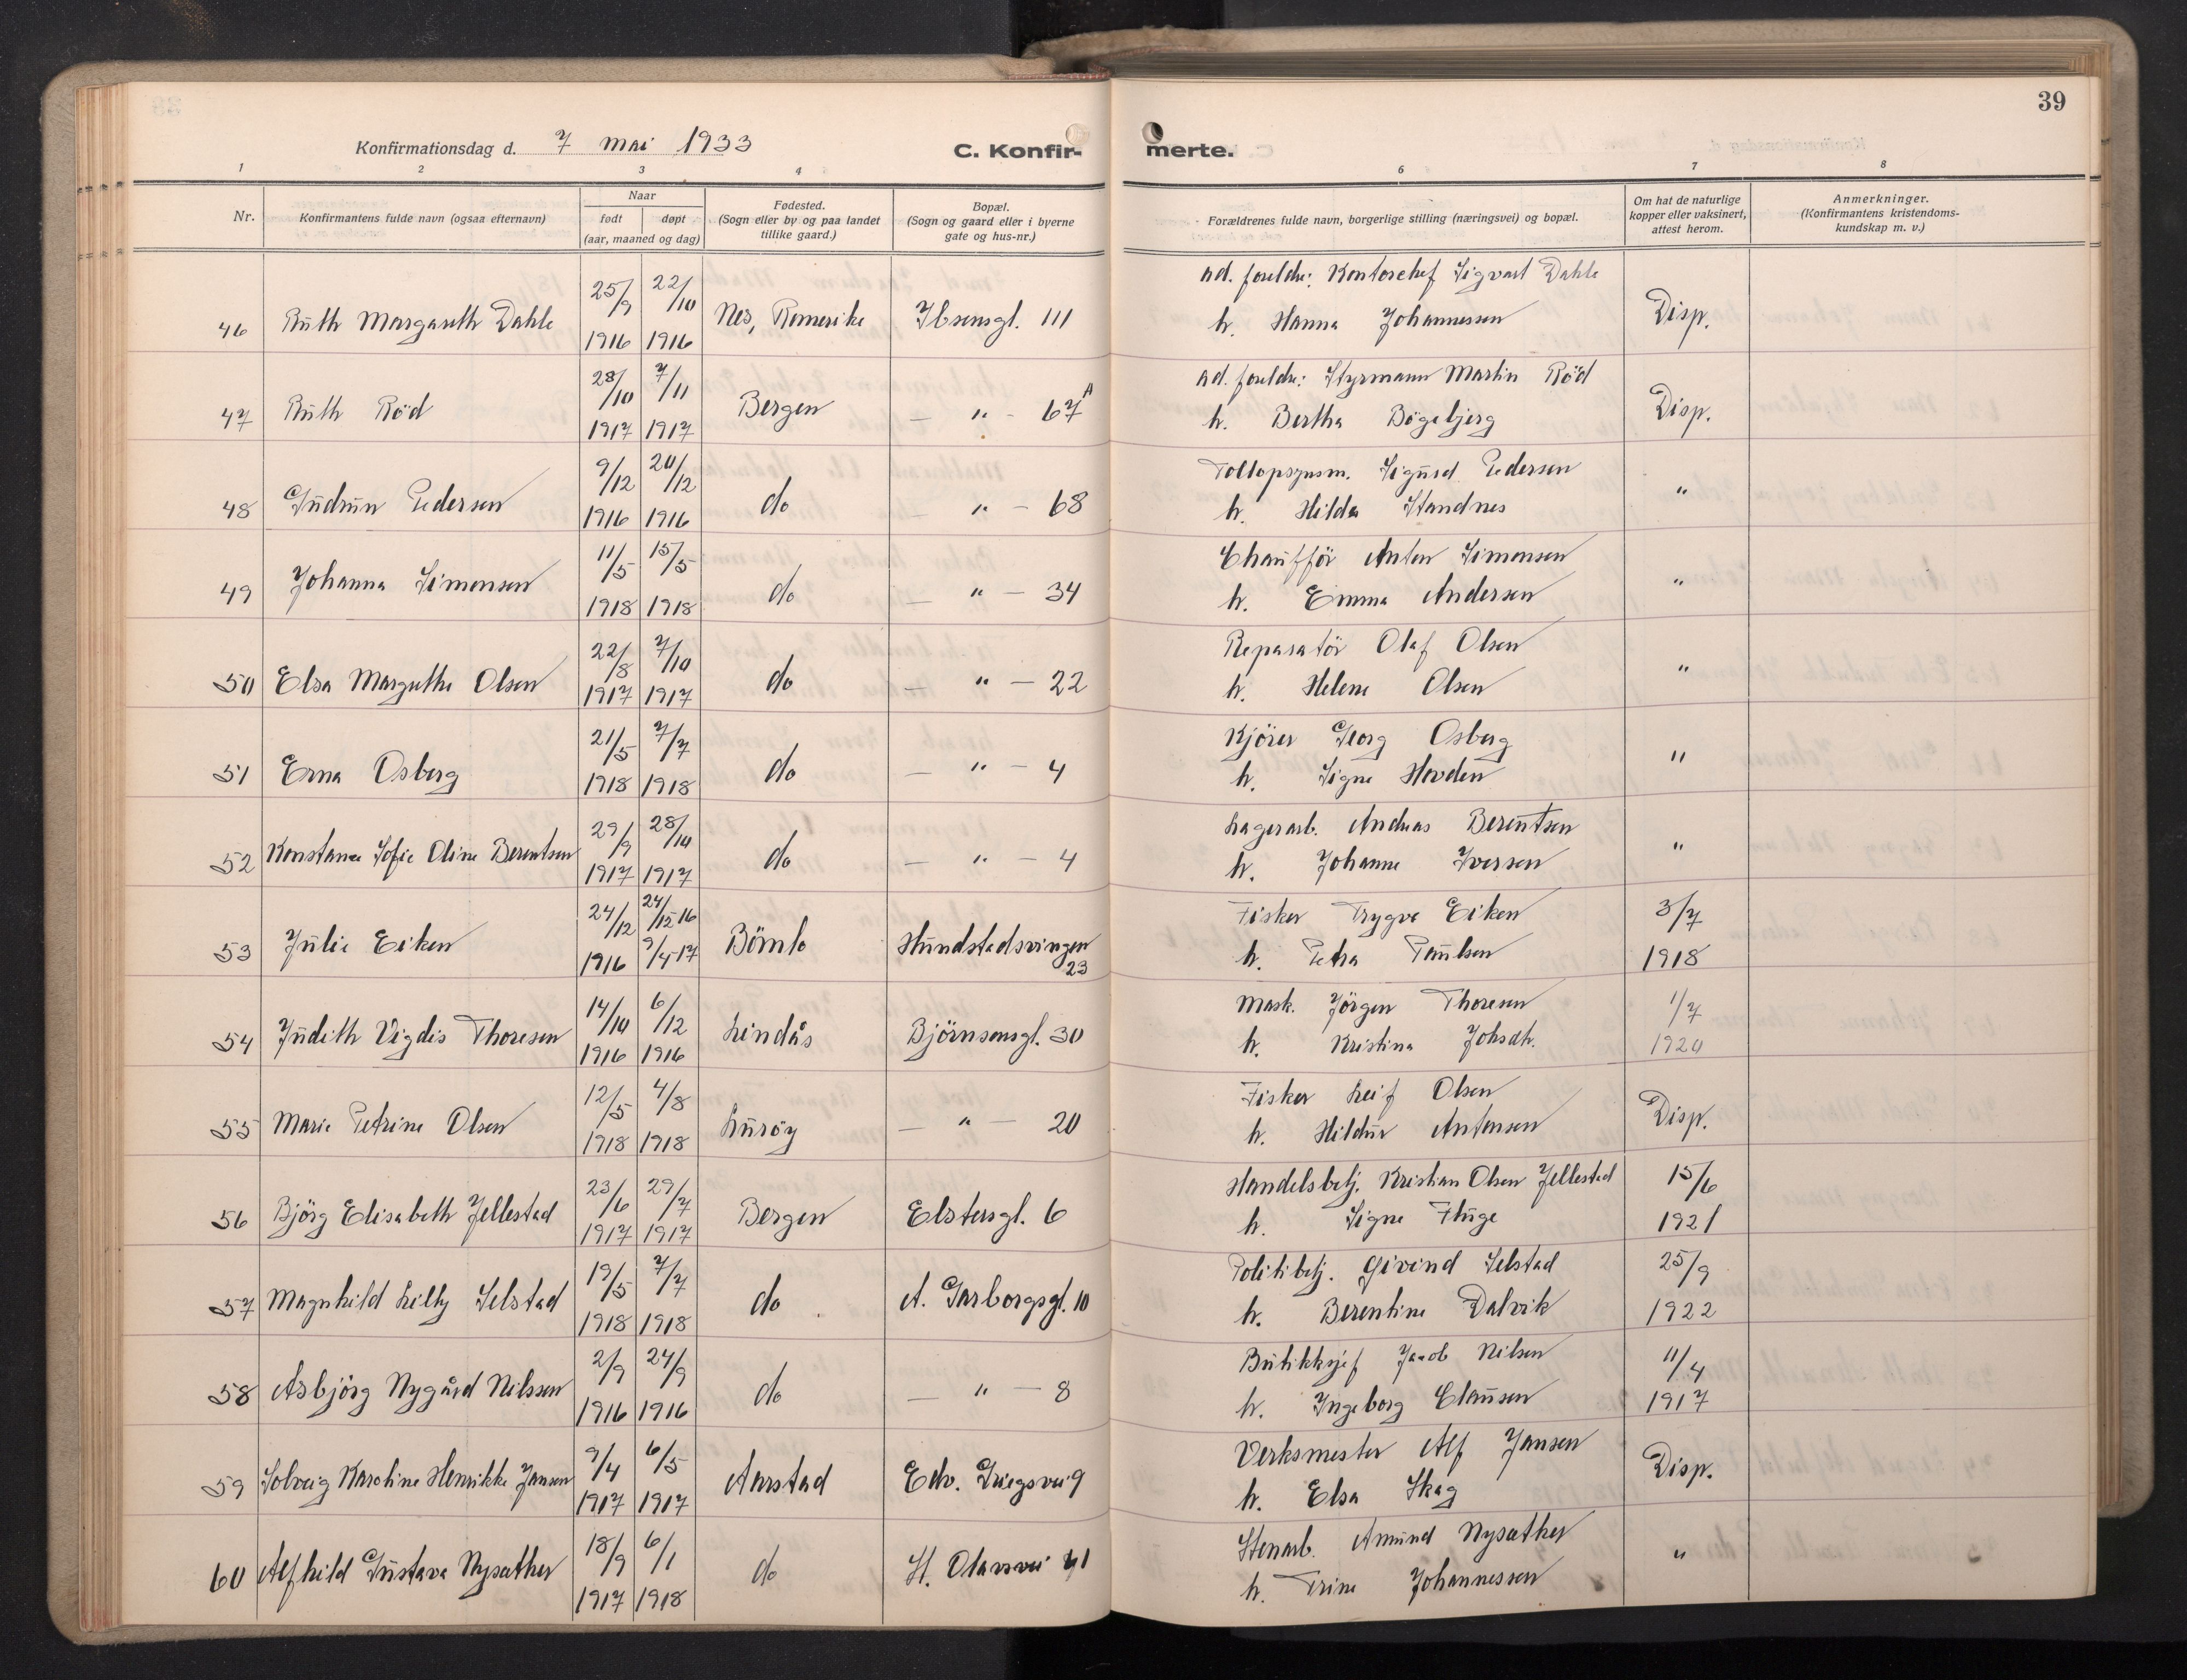 39
Konfirmationsdag d. 7 mai 1933
C. Konfir-
merte.
1 2 3 4 6 7 8
Nr.
Konfirmantens fulde navn (ogsaa efternavn)
Naar
født døpt
(aar, maaned og dag)
Fødested.
(Sogn eller by og paa landet
tillike gaard.)
Bopæl.
(Sogn og gaard eller i byerne
gate og hus-nr.)
Forældrenes fulde navn, borgerlige stilling (næringsvei) og bopæl.
Om hat de naturlige
kopper eller vaksinert,
attest herom.
Anmerkninger.
(Konfirmantens kristendoms-
kundskap m. v.)
25/9 22/10 ad. foreldre: Kontorchef Sigvart Dahle
46 Ruth Margareth Dahle Nes, Romerike Ibsensgt. 111 Disp.
1916 1916 h. Hanna Johannessen
28/10 7/11 ad. foreldre: Styrmann Martin Röd
47 Ruth Röd Bergen — " - 67A Disp.
1917 1917 h. Bertha Bögebjerg
9/12 20/12 Tollopsynsm. Sigurd Pedersen
48 Gudrun Pedersen do — " - 68 "
1916 1916 h. Hilda Standnes
11/5 15/5 Chaufför Anton Simonsen
49 Johanna Simonsen do — " - 34 "
1918 1918 h. Emma Andersen
22/8 7/10 Reparatör Olaf Olsen
50 Elsa Margrethe Olsen do — " - 22 "
1917 1917 h. Helene Olsen
21/5 7/7 Kjörer Georg Osberg
51 Erna Osberg do — " - 4 "
1918 1918 h. Signe Hovden
29/9 28/10 Lagerarb. Andreas Berentsen
52 Konstanse Sofie Oline Berentsen do — " - 4 "
1917 1917 h. Johanne Iversen
24/12 24/12-16 Fisker Trygve Eiken 3/7
53 Julie Eiken Bömlo Hundstadsvingen 23
1916 9/4-17 h. Petra Paulsen 1918
14/10 6/12 Mask. Jörgen Thoresen 1/7
54 Judith Vigdis Thoresen Lindås Björnsonsgt. 30
1916 1916 h. Kristina Johsdtr. 1920
12/5 4/8 Fisker Leif Olsen
55 Marie Petrine Olsen Luröy — " — 20 Disp.
1918 1918 h. Hildur Antonsen
23/6 29/7 Handelsbetj. Kristian Olsen Jellestad 15/6
56 Björg Elisabeth Jellestad Bergen Elstersgt. 6
1917 1917 h. Signe Fluge 1921
19/5 7/7 Politibetj. Eivind Selstad 25/9
57 Magnhild Lilly Selstad do A. Garborgsgt. 10
1918 1918 h. Berentine Dalvik 1922
2/9 24/9 Butikksjef Jacob Nilsen 11/4
58 Asbjörg Nygård Nilssen do — " - 8
1916 1916 h. Ingeborg Clausen 1917
9/4 6/5 Verksmester Alf Jansen
59 Solveig Karoline Henrikke Jansen Aarstad Edv. Griegsvei 9 Disp.
1917 1917 h. Elsa Skag
18/9 6/1 Stenarb. Amund Nysæther
60 Alfhild Gustava Nysæther do St. Olavsvei 41 "
1917 1918 h. Trine Johannessen